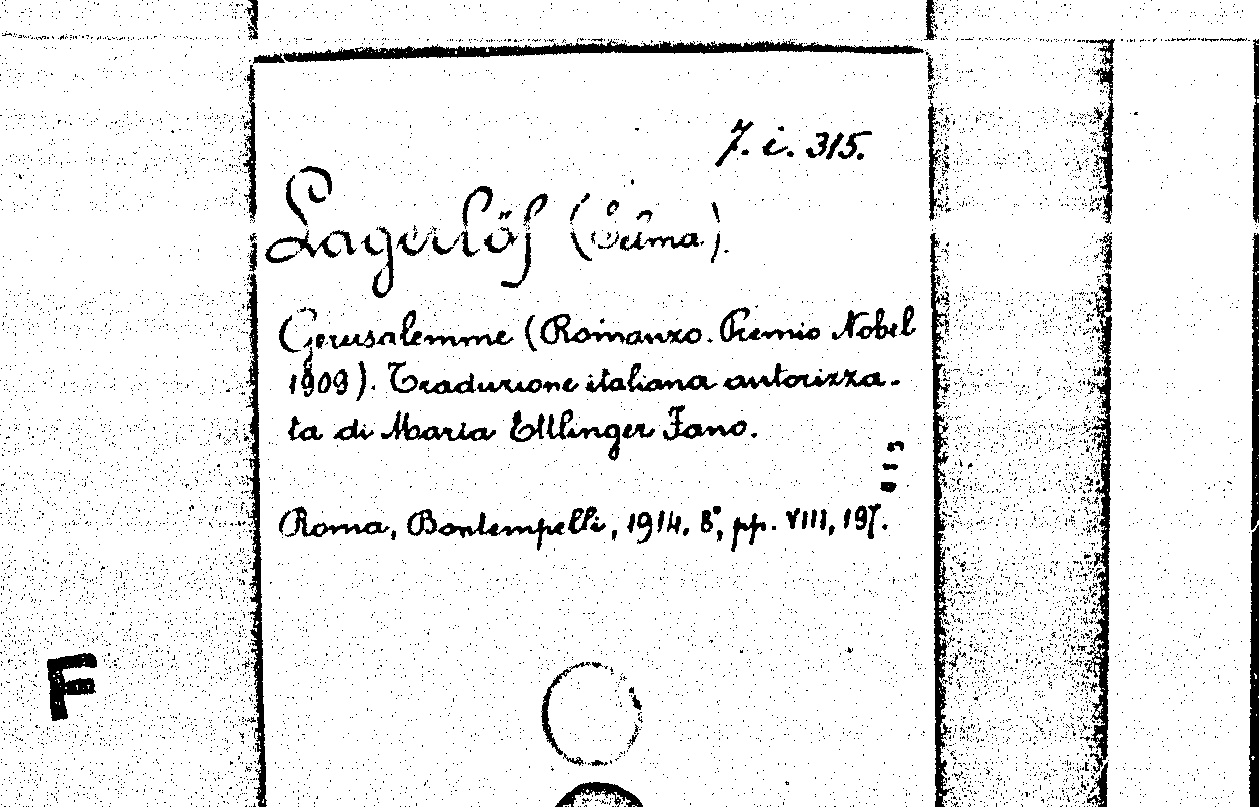 7. i. 315.
Lagerlöf (Selma).
Gerusalemme (Romanzo. Premio Nobel
1909). Traduzione italiana autorizza-
ta di Maria Ettlinger Fano.
Roma, Bontempelli, 1914. 8°, pp. VIII, 197.
F